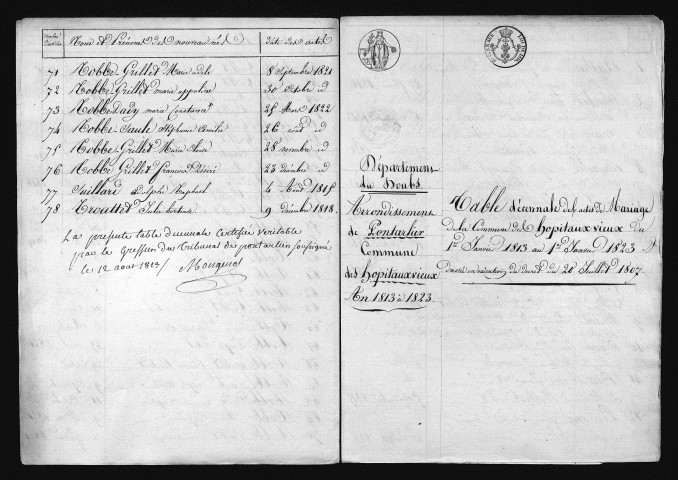 Noms et Prénoms des nouveau nés Date des actes
71 Nobbe Grillet Marie adele 8 Septembre 1821
72 Nobbe Grillet marie appoline 30 Octobre id
73 Nobbe Lady marie Constance 25 Mars 1822
74 Nobbe Saule Stéphanie Emilie 26 août id
75 Nobbe Grillet Maria 28 novembre id
76 Nobbe Grillet françois Désiré 23 décembre id
77 Tuillard Delphe Raphael 4 Août 1815
78 Trouttet Julie 9 Décembre 1818.
La présente table décennale certifiée véritable
par le Greffier du Tribunal de pontarlier soussigné
le 12 aout 1823
Département
du Doubs.
Arrondissement
de Pontarlier
Commune
des Hopitauxvieux
An 1813 à 1823.
Table décennale des actes de Mariage
de la Commune des Hopitaux vieux du
1er Janvier 1813 au 1er Janvier 1823
Dressée en exécution du décret du 20 Juillet 1807.